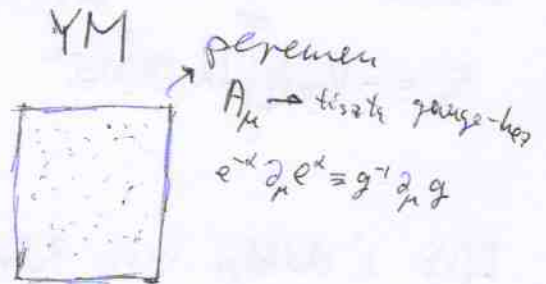 YM
peremen
A_μ → tiszta gauge-hez
e^{-α} ∂_μ e^α ≡ g^{-1} ∂_μ g